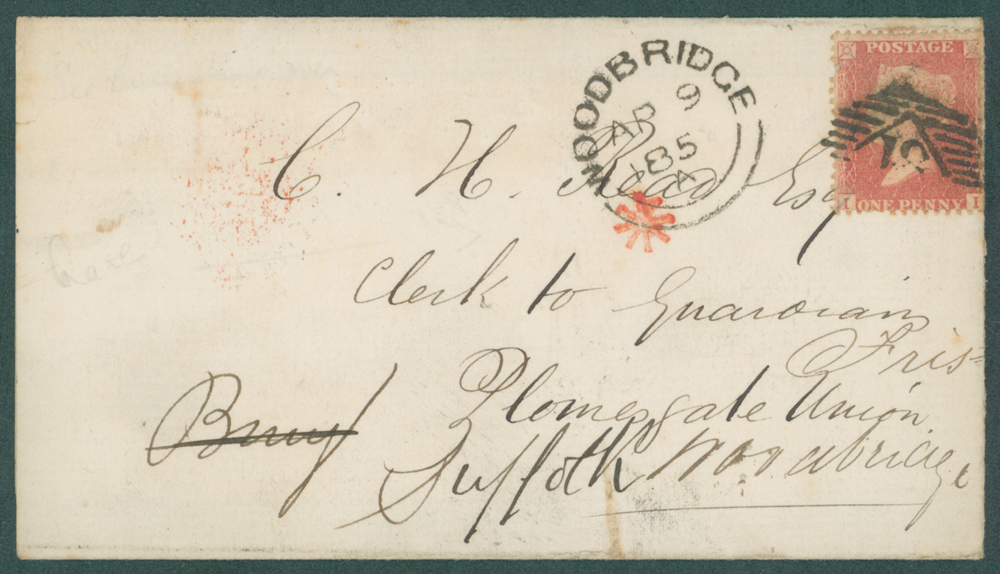 WOODBRIDGE
AP 9
185
A
POSTAGE
I I
ONE PENNY
C. H. Read Esq
Clerk to Guardians
Fris=
Plomesgate Union
Bury
Suffolk Woodbridge